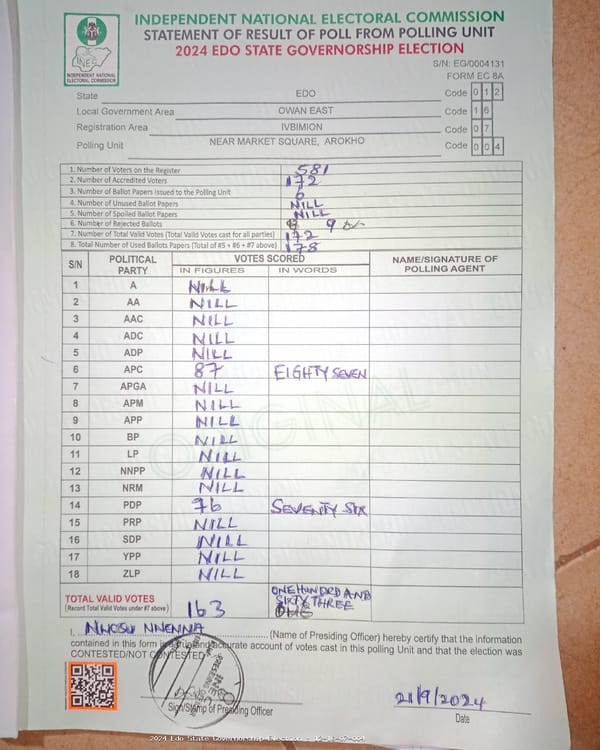 INDEPENDENT NATIONAL ELECTORAL COMMISSION
STATEMENT OF RESULT OF POLL FROM POLLING UNIT
2024 EDO STATE GOVERNORSHIP ELECTION
INEC
INDEPENDENT NATIONAL
ELECTORAL COMMISSION
S/N: EG/0004131
FORM EC 8A
State EDO Code 0 1 2
Local Government Area OWAN EAST Code 1 6
Registration Area IVBIMION Code 0 7
Polling Unit NEAR MARKET SQUARE, AROKHO Code 0 0 4
1. Number of Voters on the Register 581
2. Number of Accredited Voters 172
3. Number of Ballot Papers Issued to the Polling Unit
4. Number of Unused Ballot Papers NILL
5. Number of Spoiled Ballot Papers NILL
6. Number of Rejected Ballots 9
7. Number of Total Valid Votes (Total Valid Votes cast for all parties) 172
8. Total Number of Used Ballots Papers (Total of #5 + #6 + #7 above) 178
S/N POLITICAL PARTY VOTES SCORED NAME/SIGNATURE OF POLLING AGENT
IN FIGURES IN WORDS
1 A NILL
2 AA NILL
3 AAC NILL
4 ADC NILL
5 ADP NILL
6 APC 87 EIGHTY SEVEN
7 APGA NILL
8 APM NILL
9 APP NILL
10 BP NILL
11 LP NILL
12 NNPP NILL
13 NRM NILL
14 PDP 76 SEVENTY SIX
15 PRP NILL
16 SDP NILL
17 YPP NILL
18 ZLP NILL
ORIGINAL
TOTAL VALID VOTES
(Record Total Valid Votes under #7 above) 163 ONE HUNDRD AND
SIXTY THREE
I, NWOSU NNENNA (Name of Presiding Officer) hereby certify that the information
contained in this form is a true and accurate account of votes cast in this polling Unit and that the election was
CONTESTED/NOT CONTESTED
Sign/Stamp of Presiding Officer
21/9/2024
Date